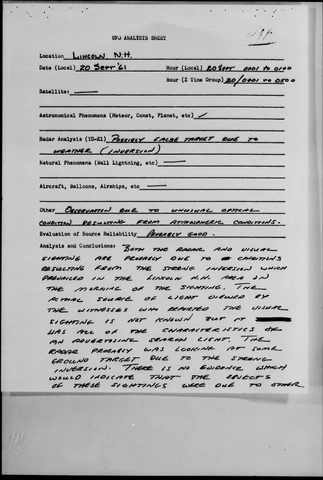 UFO ANALYSIS SHEET
Location LINCOLN, N.H.
Date (Local) 20 SEPT '61 Hour (Local) 20 SEPT 0001 TO 0100
Hour (Z Time Group) 20/0401 TO 0500
Satellite:
Astronomical Phenomena (Meteor, Comet, Planet, etc)
Radar Analysis (TD-E1) POSSIBLY FALSE TARGET DUE TO
WEATHER (INVERSION)
Natural Phenomena (Ball Lightning, etc)
Aircraft, Balloons, Airships, etc
Other OBSERVATION DUE TO UNUSUAL OPTICAL
CONDITION RESULTING FROM ATMOSPHERIC CONDITIONS.
Evaluation of Source Reliability PROBABLY GOOD.
Analysis and Conclusions: BOTH THE RADAR AND VISUAL
SIGHTING ARE PROBABLY DUE TO CONDITIONS
RESULTING FROM THE STRONG INVERSION WHICH
PREVAILED IN THE LINCOLN N.H. AREA ON
THE MORNING OF THE SIGHTING. THE
ACTUAL SOURCE OF LIGHT VIEWED BY
THE WITNESSES WHO REPORTED THE VISUAL
SIGHTING IS NOT KNOWN BUT IT
HAS ALL OF THE CHARACTERISTICS OF
AN ADVERTISING SEARCH LIGHT. THE
RADAR PROBABLY WAS LOOKING AT SOME
GROUND TARGET DUE TO THE STRONG
INVERSION. THERE IS NO EVIDENCE WHICH
WOULD INDICATE THAT THE OBJECTS
OF THESE SIGHTINGS WERE DUE TO OTHER